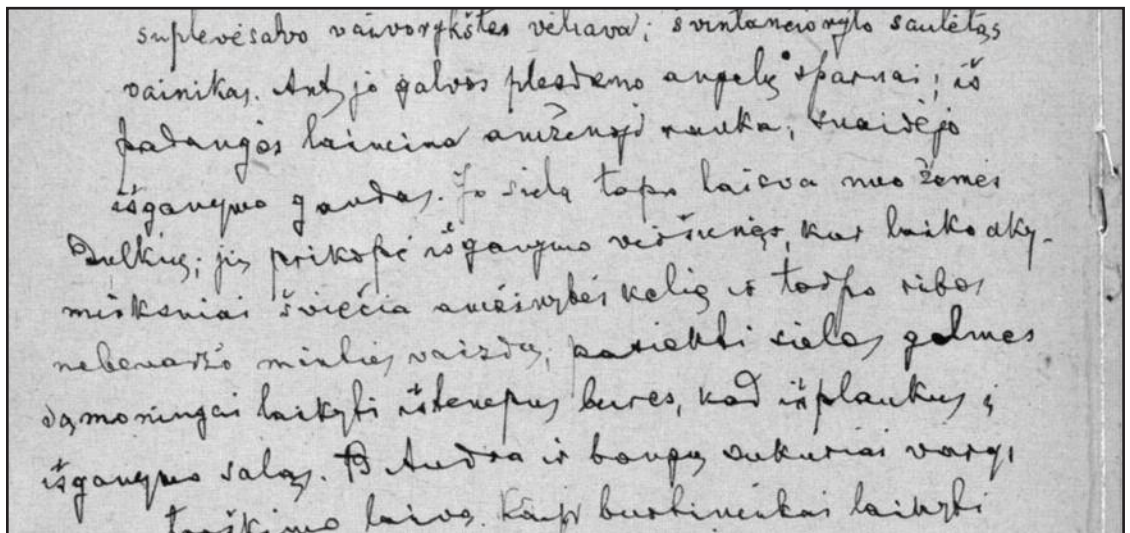 suplevėsavo vaivorykštės vėliava; švintančio rýto saulėtas
vainikas. Ant jo galvos plesdeno angelų sparnai; iš
padangės laimina amžinoji ranka; suaidėjo
išganymo gaudas. Jo siela tapo laisva nuo žemės
Dulkių; jis prikopė išganymo viršūnės, kur laiko aky-
mirksniai šviečia amžinybės kelią ir tarpo ribos
nebevaržo minties vaizdų, pasiekti sielos gelmes
sąmoningai laikyti ištemptas bures, kad išplaukus į
išganymo salas. Audra ir bangų sukuriai
laivą. Kaip burtininkai laikyti